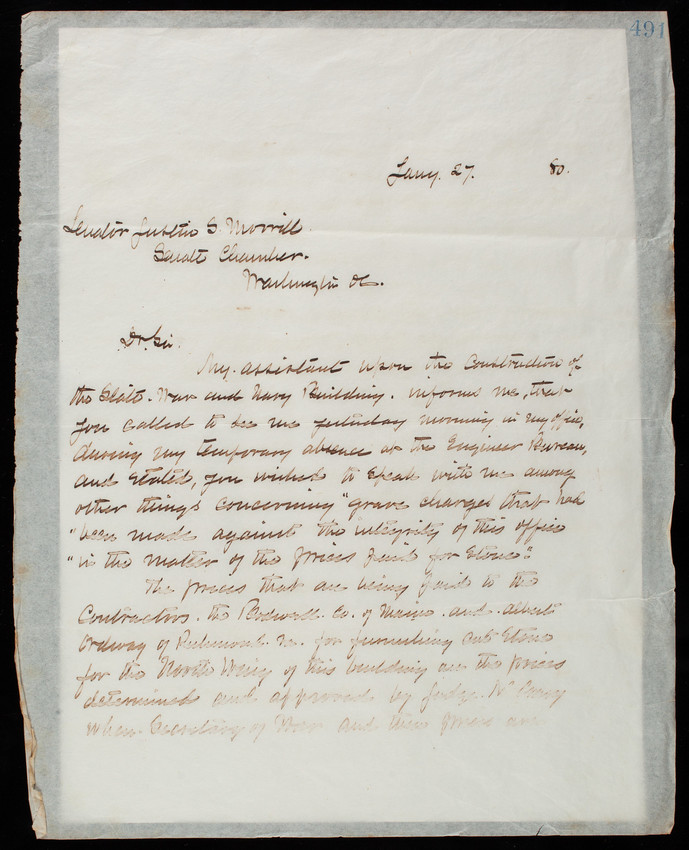 491
Jany. 27. 80.
Senator Justin S. Morrill.
Senate Chamber.
Washington DC.
Dr. Sir.
My assistant upon the Construction of
the State. War and Navy Building. informs me, that
you called to see me yesterday morning in my office,
during my temporary absence at the Engineer Bureau,
and stated, you wished to speak with me among
other things concerning "grave charges that had
"been made against the integrity of this office
"in the matter of the prices paid for stone."
The prices that are being paid to the
Contractors. the Bodwell Co. of Maine and Albert
Ordway of Richmond Va. for furnishing cut stone
for the North Wing of this building are the prices
determined and approved by Judge McCrary
when Secretary of War and these prices are